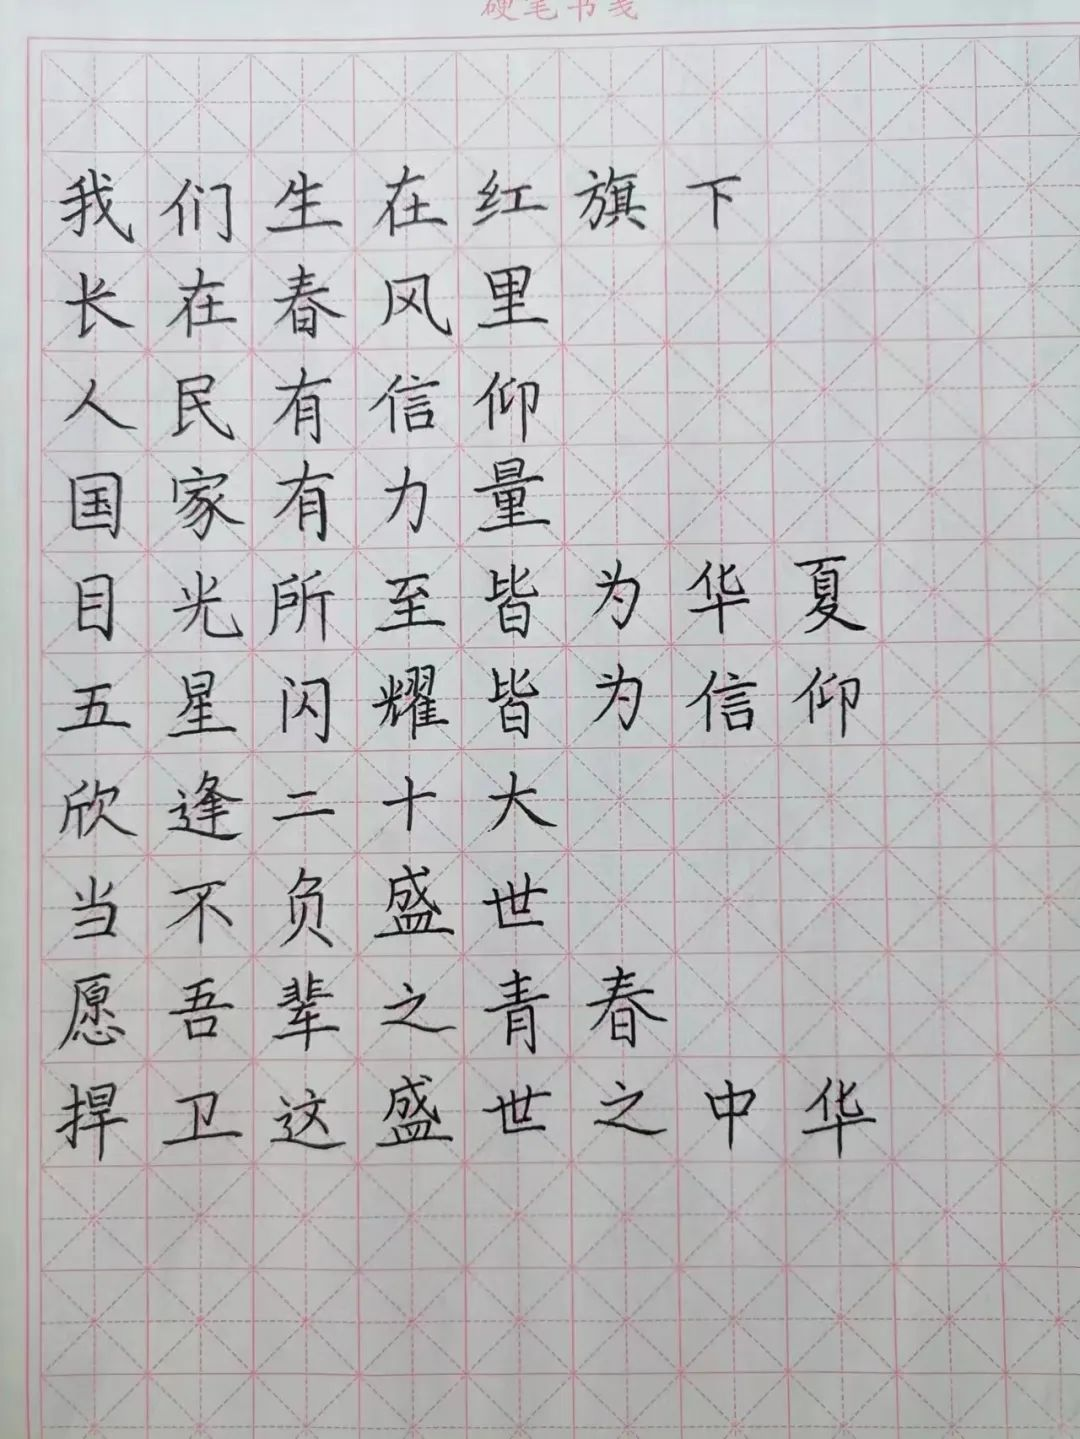 硬笔书笺
我们生在红旗下
长在春风里
人民有信仰
国家有力量
目光所至皆为华夏
五星闪耀皆为信仰
欣逢二十大
当不负盛世
愿吾辈之青春
捍卫这盛世之中华